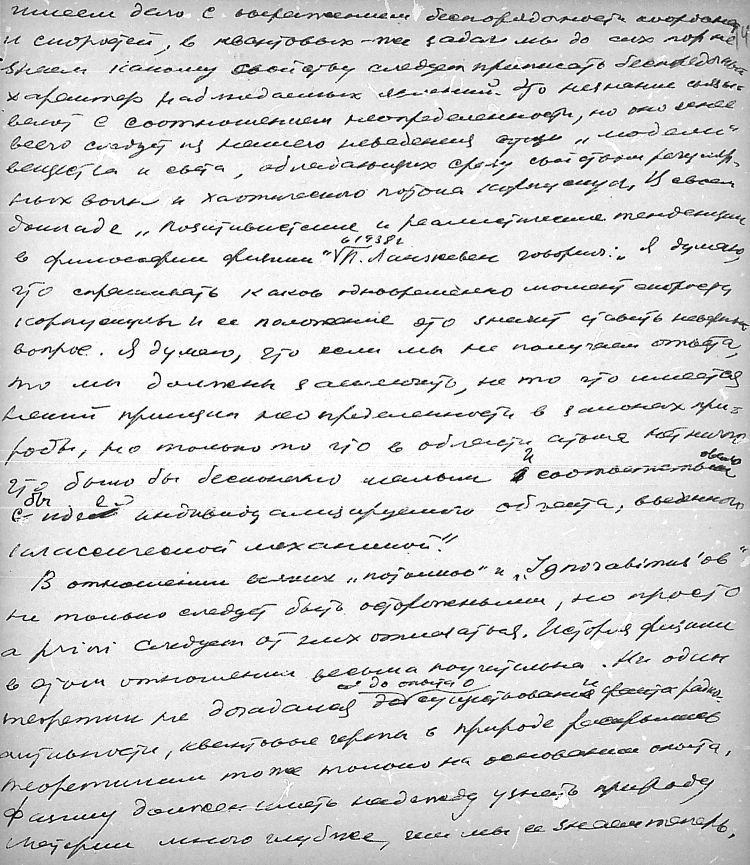 имеем дело с выражением беспорядочности координат
и скоростей, в квантовых же задач мы до сих пор не
знаем какому свойству следует приписать беспорядочный
характер наблюдаемых явлений. Это незнание связы-
вают с соотношением неопределенности, но оно скорее
всего следует из нашего неведения этой „модели"
вещества и света, обладающих сразу свойством регуляр-
ных волн и хаотического потока корпускул. В своем
докладе „Позитивистские и реалистические тенденции
в философии физики" в 1938 г. П. Ланжевен говорил: „Я думаю,
что спрашивать каков одновременно момент скорости
корпускулы и ее положение это значит ставить неверный
вопрос. Я думаю, что если мы не получаем ответа,
то мы должны заключить, не то что имеется
некий принцип неопределенности в законах при-
роды, но только то что в области атома нет ничего
что было бы бесконечно малым и соответствовало
бы идее индивидуализируемого объекта, введенного
классической механикой".
В отношении всяких „потолков" и „Ignorabimus'ов"
не только следует быть осторожными, но просто
a priori следует от них отказаться. История физики
в этом отношении весьма поучительна. Ни один
теоретик не догадался до опыта о существовании факта радио-
активности, квантовые черты в природе раскрылись
теоретикам тоже только на основании опыта.
Физику должен иметь надежду узнать природу
материи много глубже, чем мы ее знаем теперь,